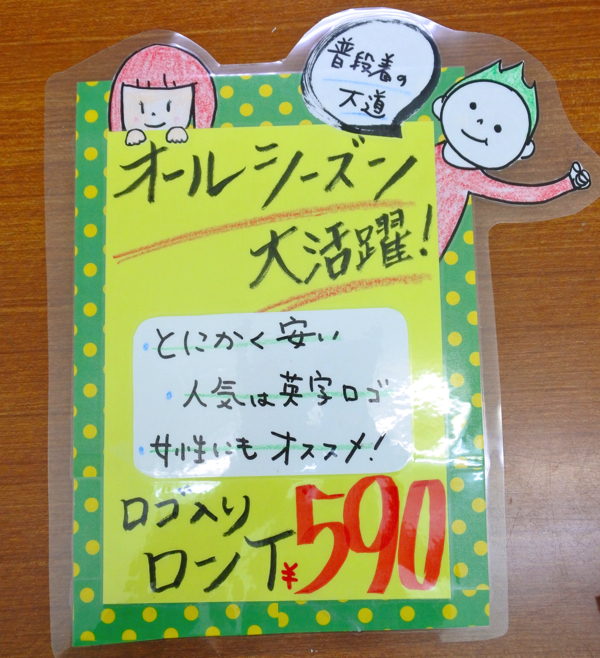 普段着の
大道
オールシーズン
大活躍!
・とにかく安い
・人気は英字ロゴ
・女性にもオススメ!
ロゴ入り
ロンT ¥590